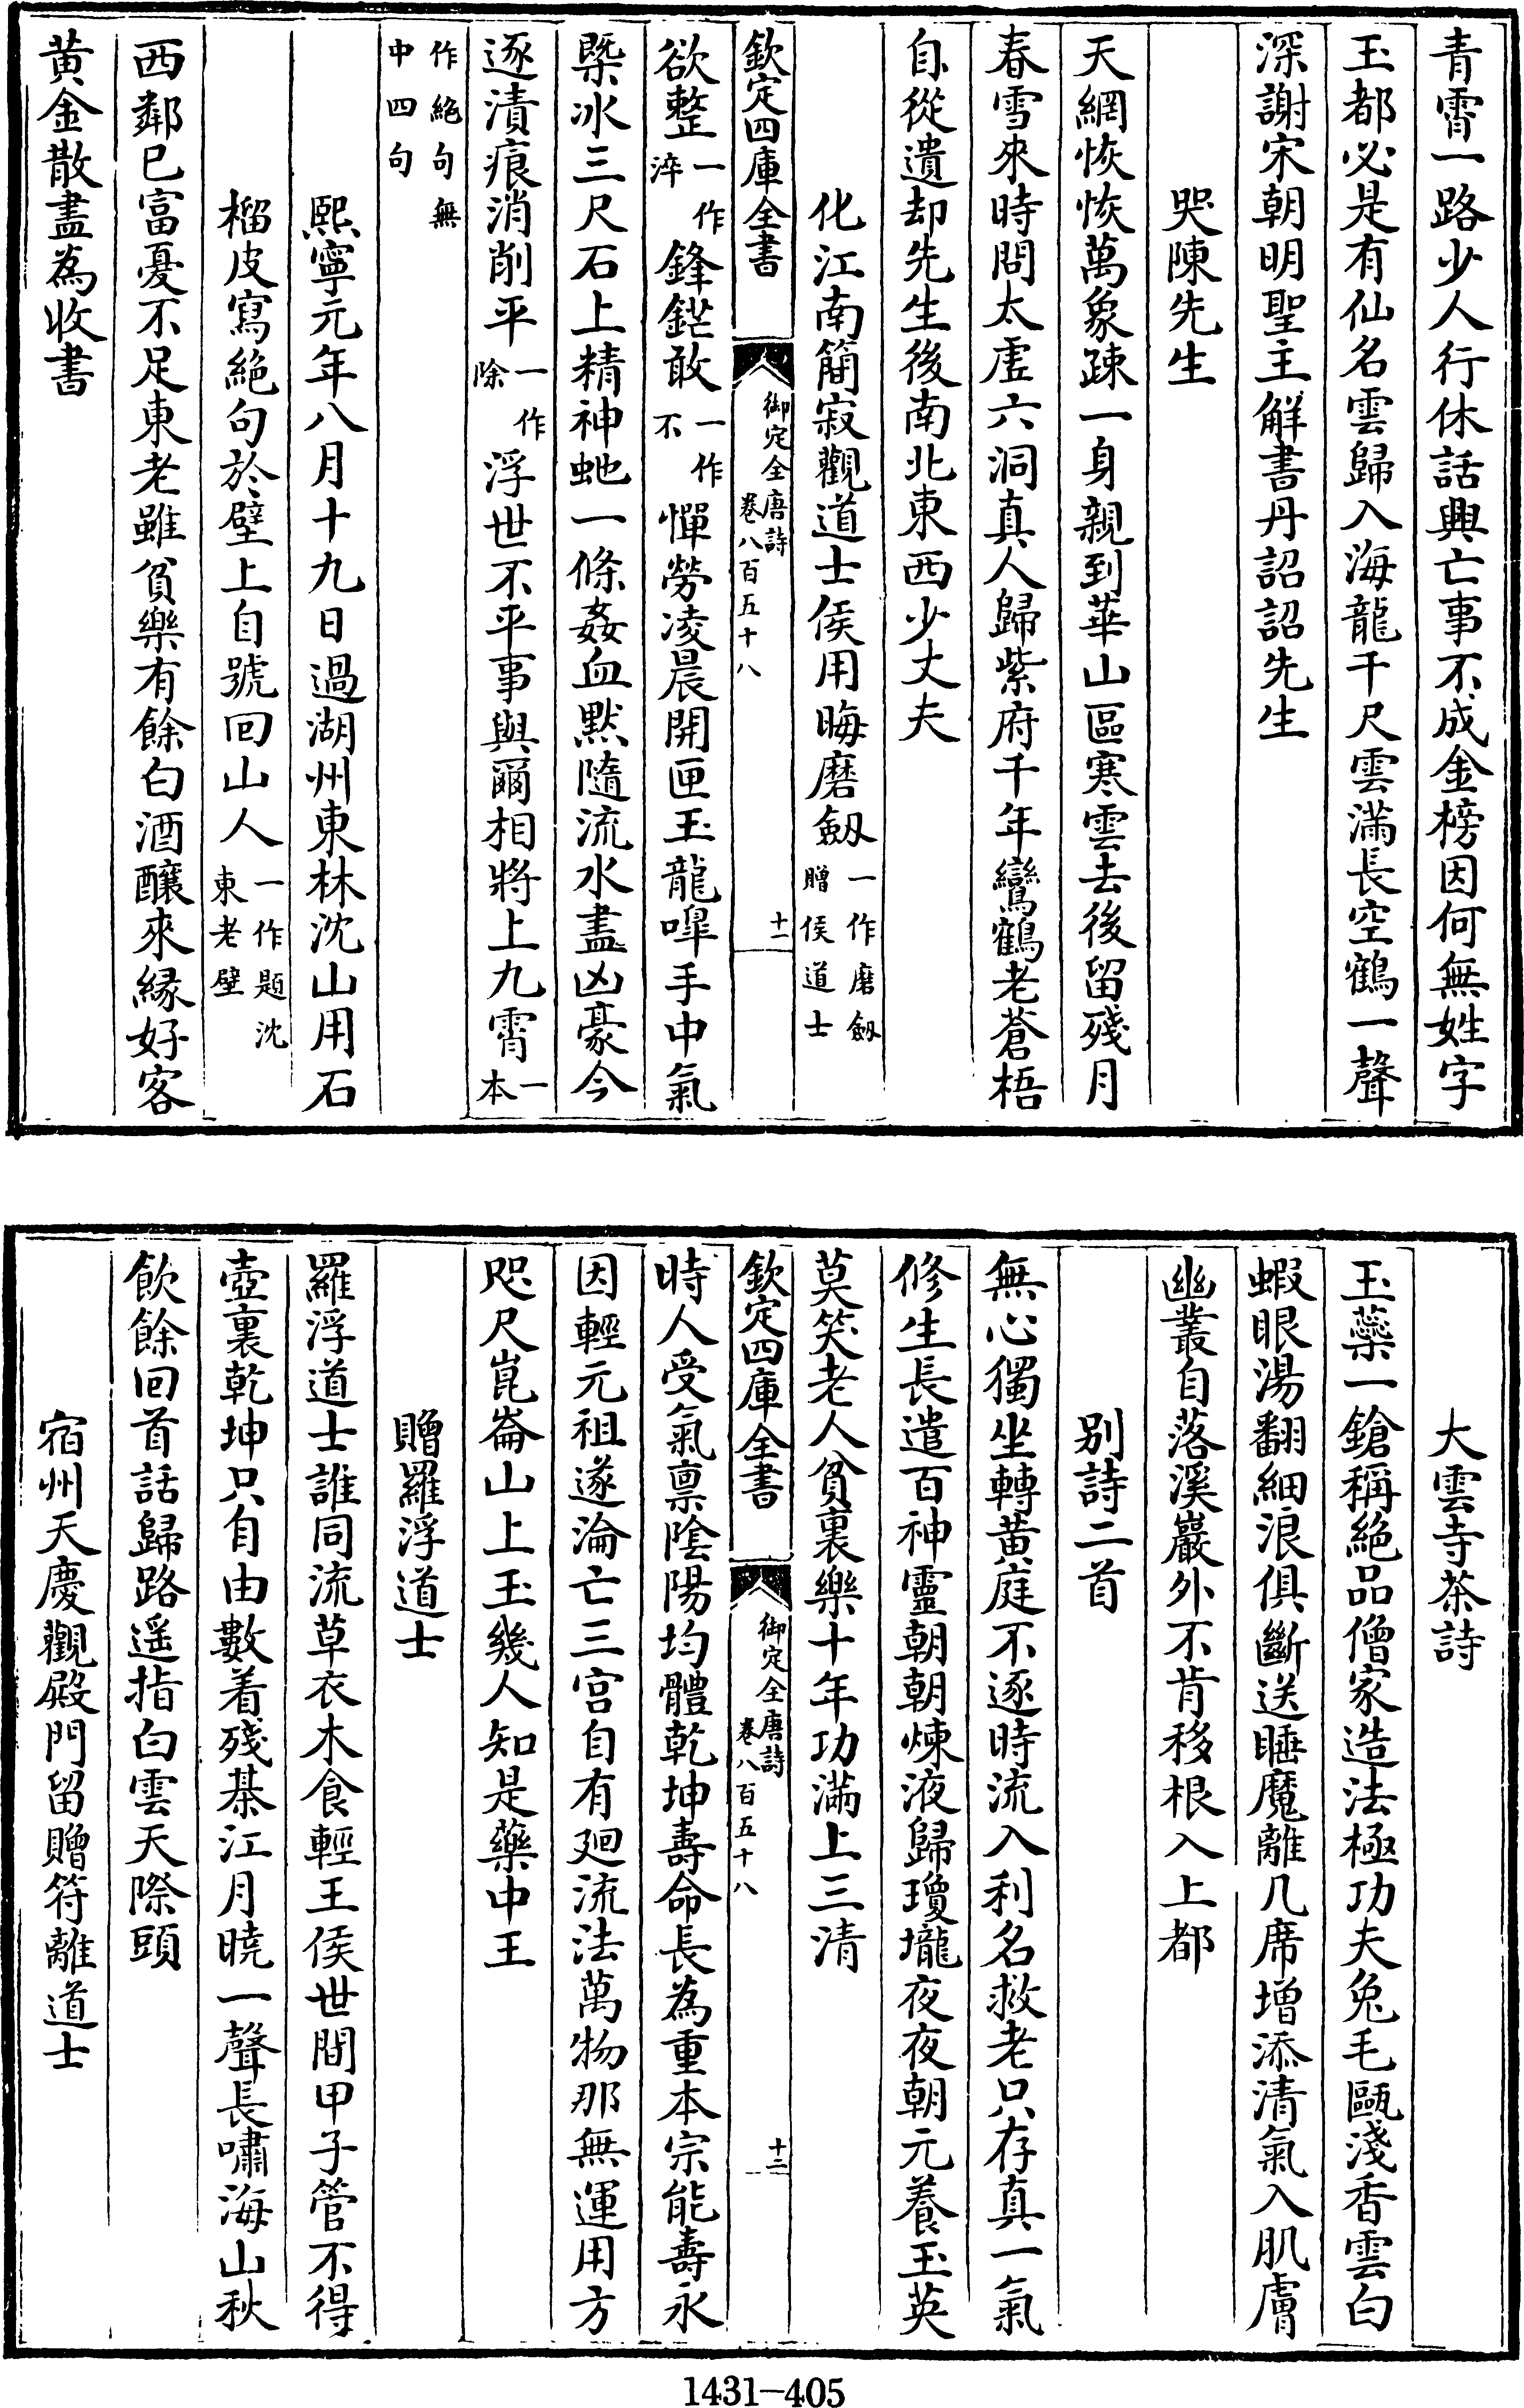 青霄一路少人行休話興亡事不成金榜因何無姓字
玉都必是有仙名雲歸入海龍千尺雲滿長空鶴一聲
深謝宋朝明聖主解書丹詔詔先生
哭陳先生
天網恢恢萬象踈一身親到華山區寒雲去後留殘月
春雪來時問太虛六洞真人歸紫府千年鸞鶴老蒼梧
自從遺却先生後南北東西少丈夫
化江南簡寂觀道士侯用晦磨劔一作磨劔贈侯道士
欽定四庫全書 御定全唐詩卷八百五十八 十一
欲整一作淬鋒鋩敢一作不憚勞凌晨開匣玉龍嘷手中氣
槩冰三尺石上精神虵一條姦血默隨流水盡凶豪今
逐漬痕消削平一作除浮世不平事與爾相將上九霄一本
作絶句無中四句
熙寧元年八月十九日過湖州東林沈山用石
榴皮寫絶句於壁上自號回山人一作題沈東老壁
西鄰已富憂不足東老雖貧樂有餘白酒釀來緣好客
黄金散盡為收書
大雲寺茶詩
玉蘂一鎗稱絶品僧家造法極功夫兔毛甌淺香雲白
蝦眼湯翻細浪俱斷送睡魔離几席增添清氣入肌膚
幽叢自落溪巖外不肯移根入上都
别詩二首
無心獨坐轉黄庭不逐時流入利名救老只存真一氣
修生長遣百神靈朝朝煉液歸瓊壠夜夜朝元養玉英
莫笑老人貧裏樂十年功滿上三清
欽定四庫全書 御定全唐詩卷八百五十八 十二
時人受氣稟陰陽均體乾坤壽命長為重本宗能壽永
因輕元祖遂淪亡三宫自有廻流法萬物那無運用方
咫尺崑崙山上玉幾人知是藥中王
贈羅浮道士
羅浮道士誰同流草衣木食輕王侯世間甲子管不得
壺裏乾坤只自由數着殘棊江月曉一聲長嘯海山秋
飲餘回首話歸路遥指白雲天際頭
宿州天慶觀殿門留贈符離道士
1431-405